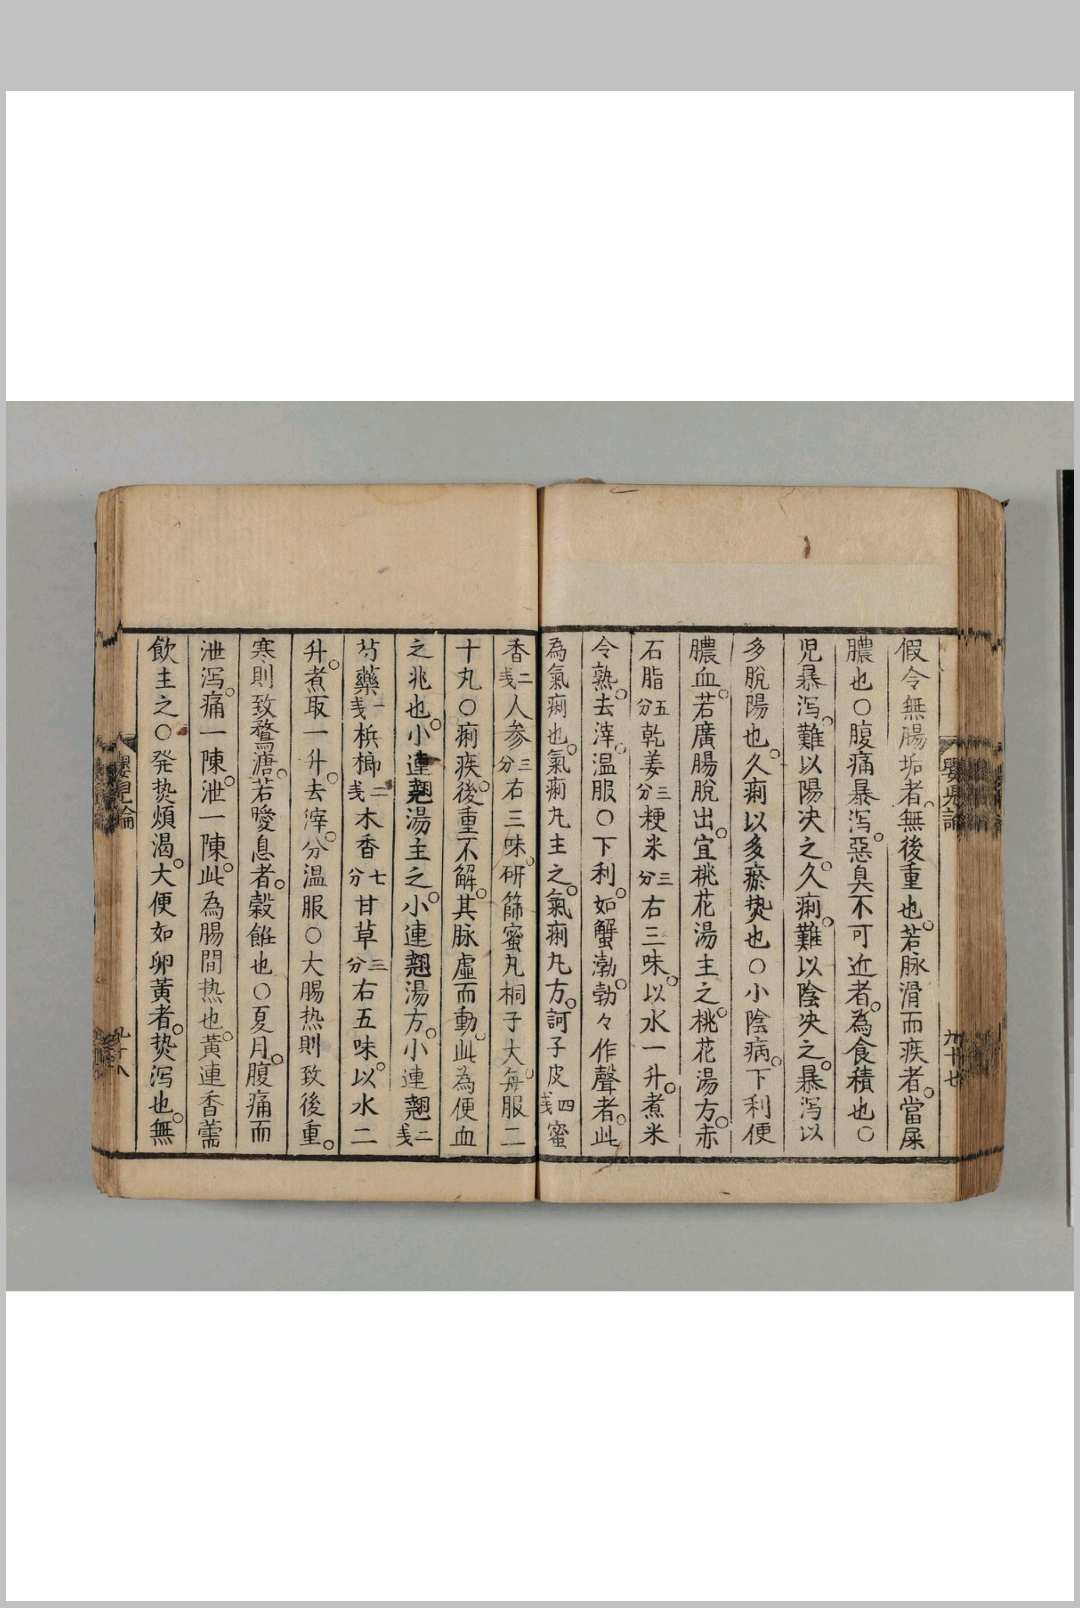 假令無腸垢者。無後重也。若脉滑而疾者。當屎
膿也〇腹痛暴泻。惡臭不可近者。為食積也〇
児暴泻。難以陽决之。久痢。難以陰决之。暴泻以
多脱陽也。久痢以多瘀热也〇小陰病。下利便
膿血。若廣腸脱出。宜桃花湯主之。桃花湯方。赤
石脂五分乾姜三分粳米三分右三味。以水一升。煮米
令熟。去滓。温服〇下利。如蟹渤渤々作聲者。此
為氣痢也。氣痢丸主之。氣痢丸方。訶子皮四戔蜜
香二戔人参三分右三味。研篩蜜丸桐子大。每服二
十丸〇痢疾。後重不解。其脉虛而動。此為便血
之兆也。小連翹湯主之。小連翹湯方。小連翹二戔
芍藥一戔梹榔二戔木香七分甘草三分右五味。以水二
升。煮取一升。去滓。分温服〇大腸热則致後重。
寒則致鶩溏。若噯息者。穀餿也〇夏月。腹痛而
泄泻。痛一陳。泄一陳。此為腸間热也。黃連香薷
飲主之〇発热煩渴。大便如卵黃者。热泻也。無
嬰児論
九十七
嬰児論
九十八